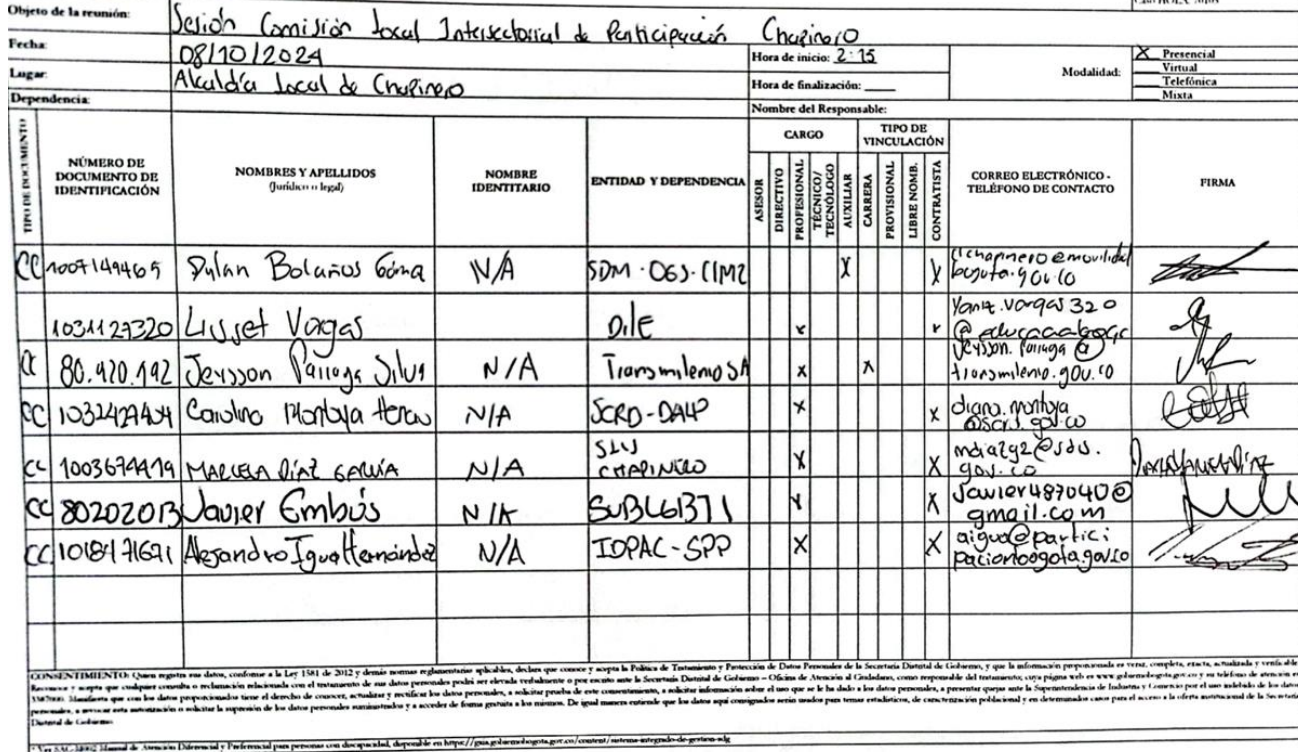 Objeto de la reunión: Sesión Comisión Local Intersectorial de Participación Chapinero
Fecha: 08/10/2024
Hora de inicio: 2:15
Lugar: Alcaldía Local de Chapinero
Hora de finalización:
Modalidad:
X Presencial
Virtual
Telefónica
Mixta
Dependencia:
Nombre del Responsable:
TIPO DE DOCUMENTO
NÚMERO DE DOCUMENTO DE IDENTIFICACIÓN
NOMBRES Y APELLIDOS
(Jurídico o legal)
NOMBRE IDENTITARIO
ENTIDAD Y DEPENDENCIA
CARGO
ASESOR
DIRECTIVO
PROFESIONAL
TÉCNICO/ TECNÓLOGO
AUXILIAR
TIPO DE VINCULACIÓN
CARRERA
PROVISIONAL
LIBRE NOMB.
CONTRATISTA
CORREO ELECTRÓNICO - TELÉFONO DE CONTACTO
FIRMA
CC Dylan Bolaños N/A X X
bogota.gov.co
1031127320 Lisset Vargas DILE x x
CC 80.920.192 Jeysson Silva N/A Transmilenio SA X X
transmilenio.gov.co
CC Carolina Montoya Henao N/A SCRD-DALP X X diana.montoya
CC MARCELA DÍAZ GARCÍA N/A CHAPINERO X X
gov.co
CC 80202013 Javier Embús N/A X X Javier487040@
gmail.com
CC Alejandro Igua Hernández N/A IDPAC-SPP X X aigua@partici
pacionbogota.gov.co
CONSENTIMIENTO: Quien registra sus datos, conforme a la Ley 1581 de 2012 y demás normas reglamentarias aplicables, declara que conoce y acepta la Política de Tratamiento y Protección de Datos Personales de la Secretaría Distrital de Gobierno, y que la información proporcionada es veraz, completa, exacta, actualizada y verificable.
Reconoce y acepta que cualquier consulta o reclamación relacionada con el tratamiento de sus datos personales podrá ser elevada verbalmente o por escrito ante la Secretaría Distrital de Gobierno – Oficina de Atención al Ciudadano, como responsable del tratamiento; cuya página web es www.gobiernobogota.gov.co y su teléfono de atención es
Manifiesto que con los datos proporcionados tiene el derecho de conocer, actualizar y rectificar los datos personales, a solicitar prueba de este consentimiento, a solicitar información sobre el uso que se le ha dado a los datos personales, a presentar quejas ante la Superintendencia de Industria y Comercio por el uso indebido de los datos
personales, a revocar esta autorización o solicitar la supresión de los datos personales suministrados y a acceder de forma gratuita a los mismos. De igual manera entiende que los datos aquí consignados serán usados para temas estadísticos, de caracterización poblacional y en determinados casos para el acceso a la oferta institucional de la Secretaría
Distrital de Gobierno.
Manual de Atención Diferencial y Preferencial para personas con discapacidad, disponible en https://gaia.gobiernobogota.gov.co/content/sistema-integrado-de-gestion-sdg